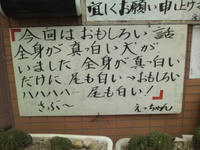 宜しくお願い申し上げ
『今回はおもしろい話
全身が真っ白い犬が
いました 全身が真っ白い
だけに 尾も白い→おもしろい
ハハハハ 尾も白い!
さぶ〜 えっちゃん』